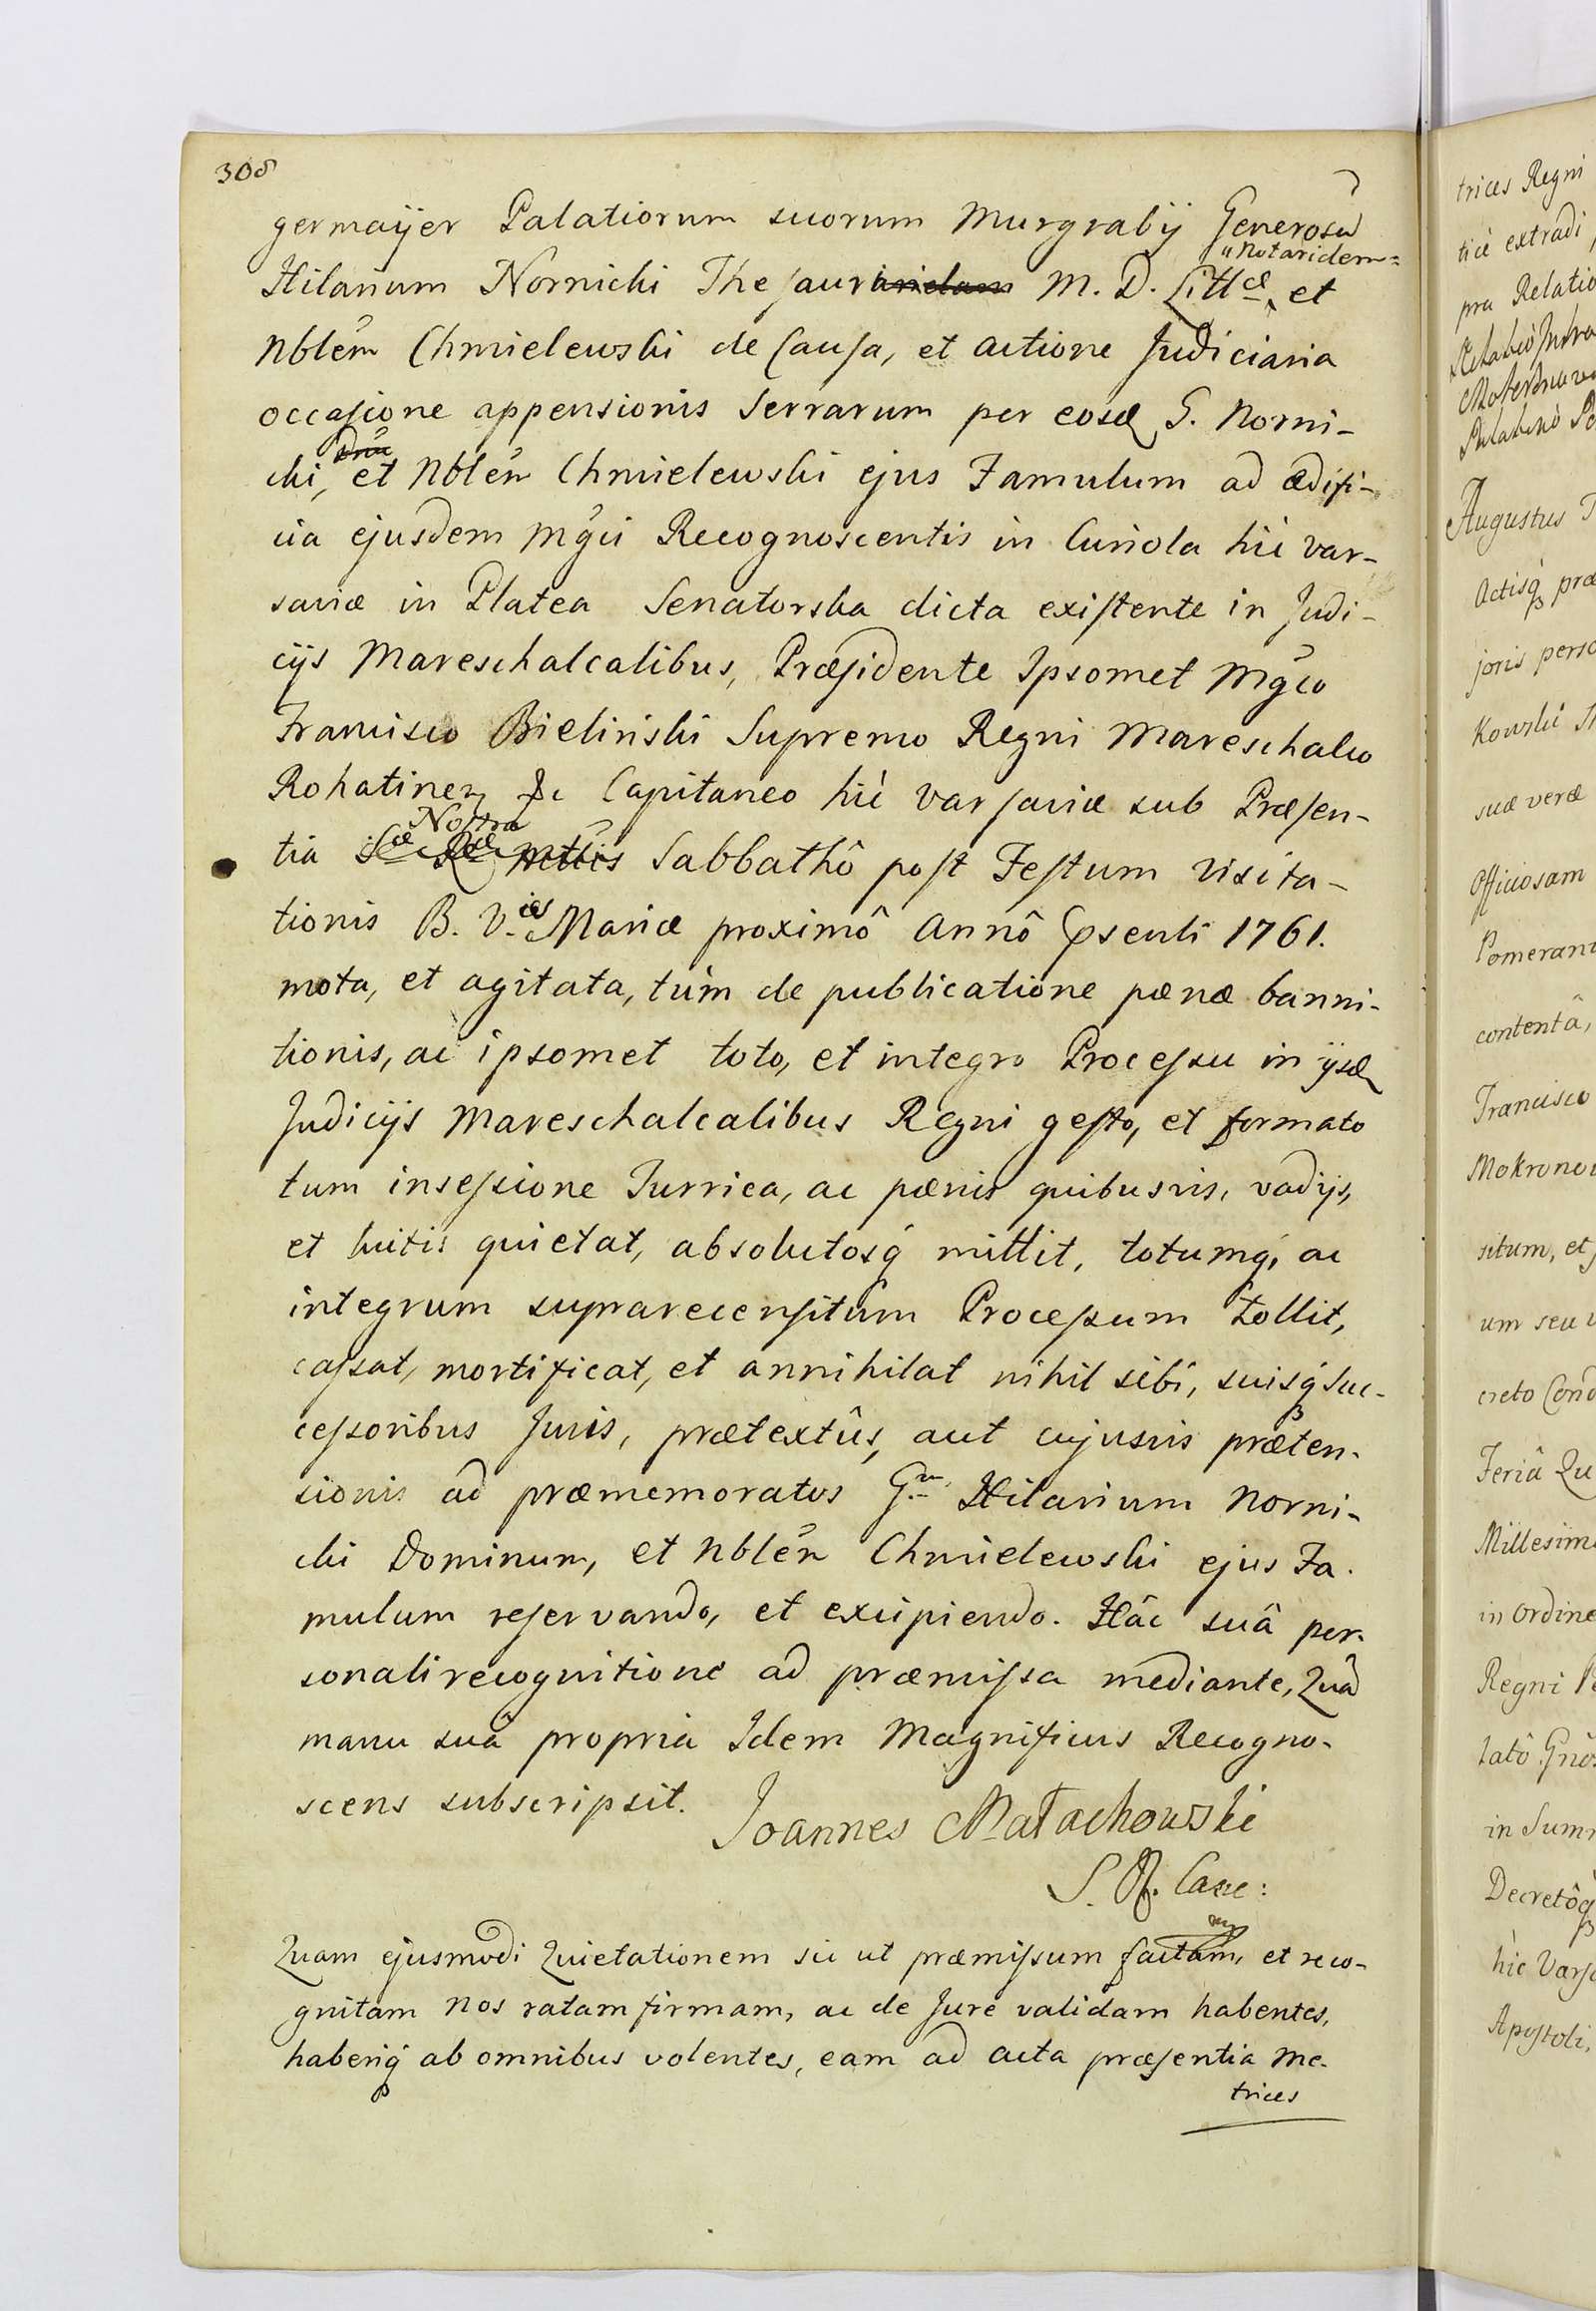 308
germaÿer Palatiorum suorum Murgrabÿ Generosū
"Notaridem=
Hilarium Nornicki Thesaur M. D. Littæ, et
Nblem̄ Chmielewski de Causa, et actione Judiciaria
occasione appensionis Serrarum per eosd G. Norni-
cki, et Nblem̄ Chmielewski ejus Famulum ad ædifi-
cia ejusdem Mg̃ci Recognoscentis in Curiola hic Var-
saviæ in Platea Senatorska dicta existente in Judi-
cijs Mareschalcalibus, Præsidente Ipsomet Mg̃co
Francisco Bielinski Supremo Regni Mareschalco
Rohatinen &c Capitaneo hic Varsaviæ sub Præsen-
Nostra
tia Sabbathô post Festum Visita-
tionis B. V.is Mariæ proximô Annô Psenti 1761.
mota, et agitata, tùm de publicatione pænæ banni-
tionis, ac ipsomet toto, et integro Processu in ijsd
Judicijs Mareschalcalibus Regni gesto, et formato
tum insessione Turrica, ac pænis quibusvis, vadijs,
et luitis quietat, absolutosq́ mittit, totumq́, ac
integrum suprarecensitum Processum tollit,
cassat, mortificat, et annihilat nihil sibi, suisq́ Suc-
cessoribus Juris, prætextûs, aut cujusvis præten-
sionis ad præmemoratos G.m Hilarium Norni-
cki Dominum, et Nblem̄ Chmielewski ejus Fa-
mulum reservando, et excipiendo. Hâc suâ per-
sonali recognitione ad præmissa mediante, Quā
manu suâ propria Idem Magnificus Recogno-
scens subscripsit. Joannes Małachowski
S. R. Canc:
Quam ejusmodi Quietationem sic ut præmissum factam, et reco-
gnitam Nos ratam firmam, ac de Jure validam habentes,
haberiq́ ab omnibus volentes, eam ad acta præsentia Me-
trices
trices Regni
tice extradi,
pra Relatio
Augustus T
Actisq́ præ
joris perso
kowski
suæ veræ
Officiosam
Pomerani
contentâ,
Francisco
Mokronow
situm, et
um seu
creto Cond
Feriâ Qu
Millesimo
in Ordine
Regni
latô Gñō
in Sum
Decretôq́
hic Varsa
Apostoli,